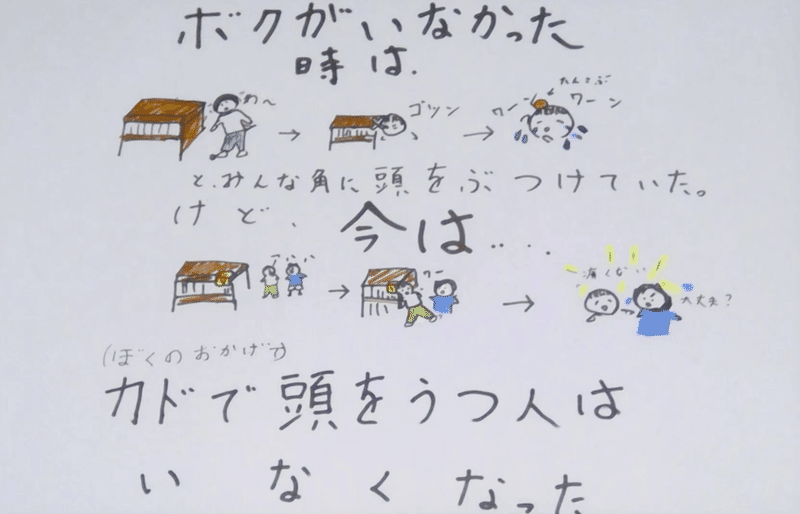 ボクがいなかった
時は.
わ〜
ゴツン
たんこぶ
ワーン ワーン
と、みんな角に頭をぶつけていた。
けど、今は....
ワー
痛くない
大丈夫?
(ぼくのおかげで)
カドで頭をうつ人は
いなくなった